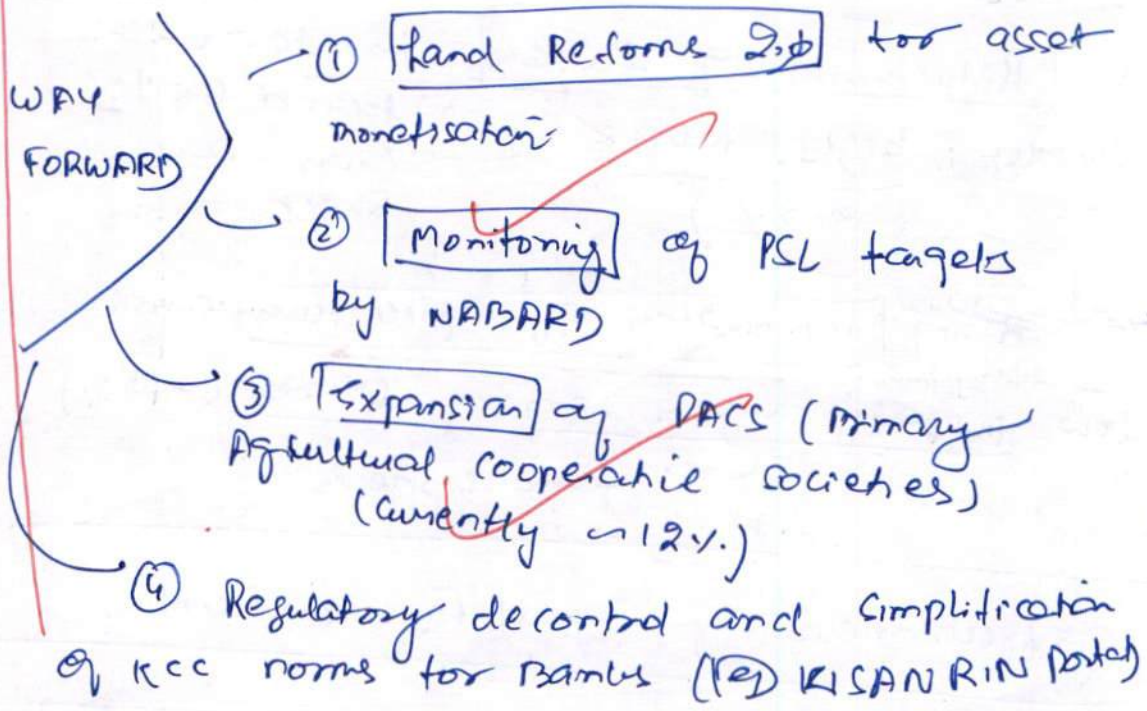 WAY
FORWARD
① Land Reforms 2.0 for asset
monetisation
② Monitoring of PSL targets
by NABARD
③ Expansion of PACS (Primary
Agricultural cooperative societies)
(Currently ~12%.)
④ Regulatory decontrol and simplification
of KCC norms for Banks (eg KISAN RIN Portal)